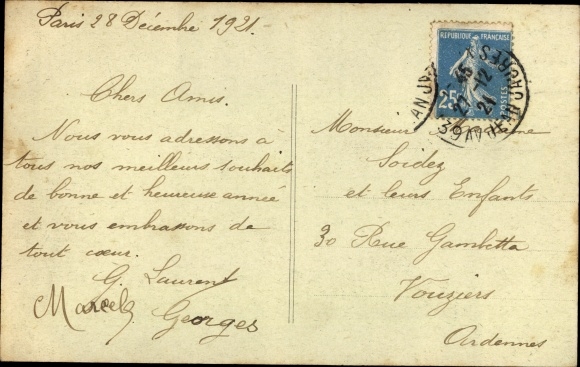 Paris 28 Décembre 1921.
Chers Amis.
Nous vous adressons à
tous nos meilleurs souhaits
de bonne et heureuse année
et vous embrassons de
tout cœur.
G. Laurent
Marcel
Georges
REPUBLIQUE FRANÇAISE
25c
POSTES
Monsieur
Soidez
et leurs Enfants
30 Rue Gambetta
Vouziers
Ardennes